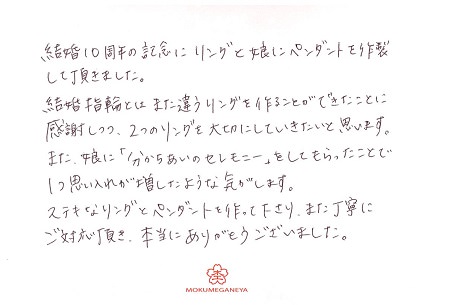 結婚10周年の記念に リングと娘にペンダントを作製
して頂きました。
結婚指輪とは また違うリングを作ることができたことに
感謝しつつ、2つのリングを大切にしていきたいと思います。
また、娘に「分かちあいのセレモニー」をしてもらったことで
1つ思い入れが増したような気がします。
ステキなリングとペンダントを作って下さり、また丁寧に
ご対応頂き、本当にありがとうございました。
MOKUMEGANEYA